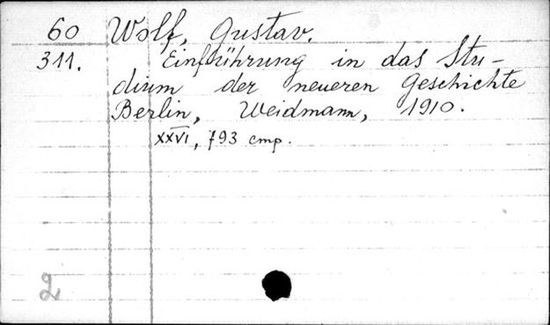 60 Wolf, Gustav.
311. Einführung in das Stu-
dium der neueren Geschichte
Berlin, Weidmann, 1910.
XXVI, 793 стр.
2